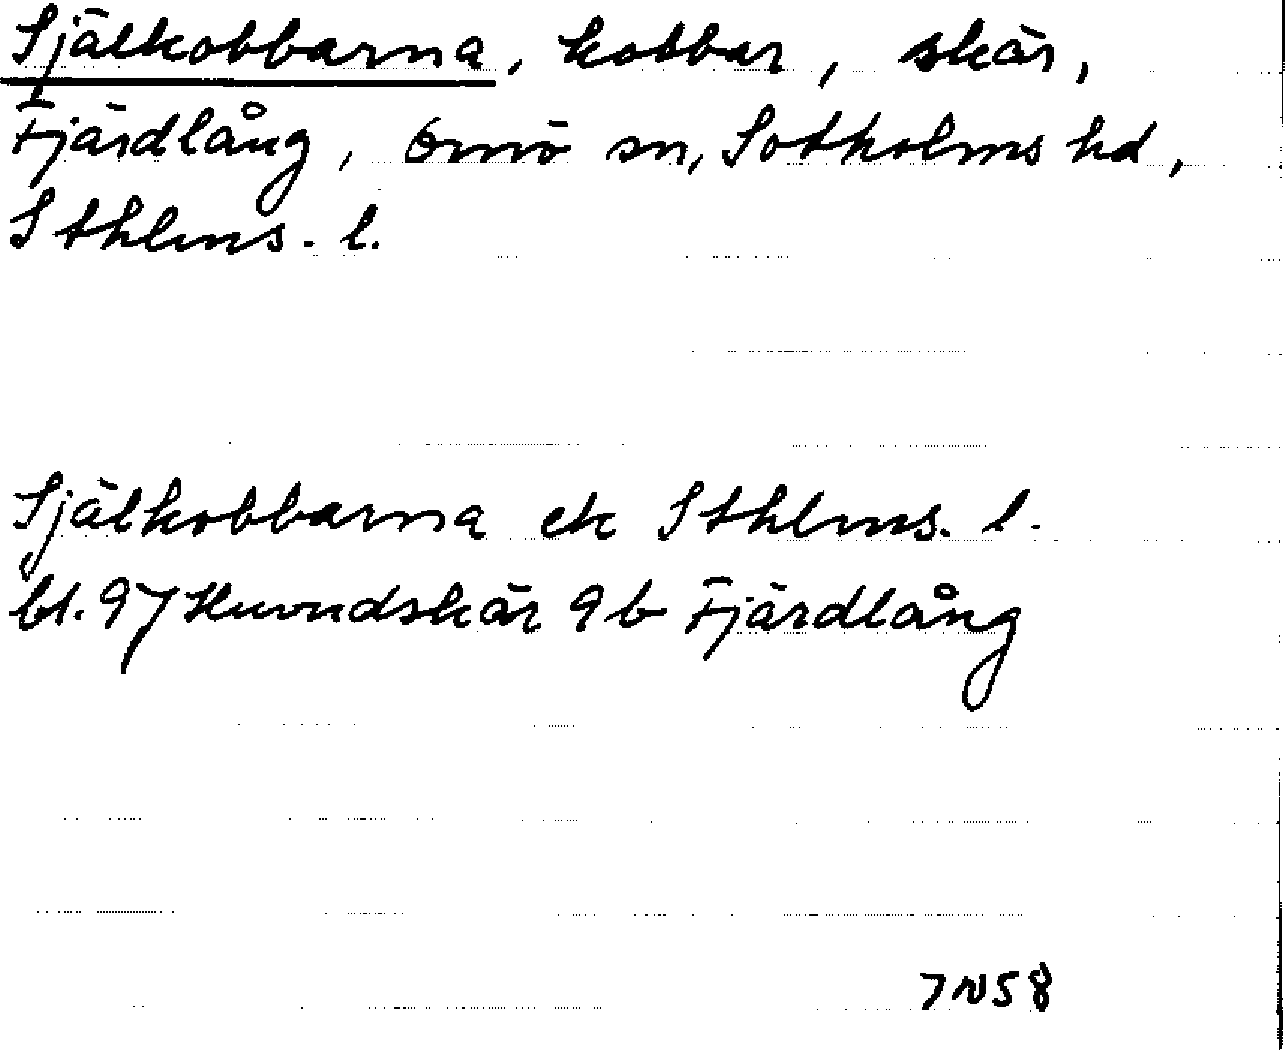 Själkobbarna, kobbar, skär,
Fjärdlång, Ornö sn, Sotholms hd,
Sthlms. l.
Själkobbarna ek Sthlms. l.
bl. 97 Huvudskär 9b Fjärdlång
7N58